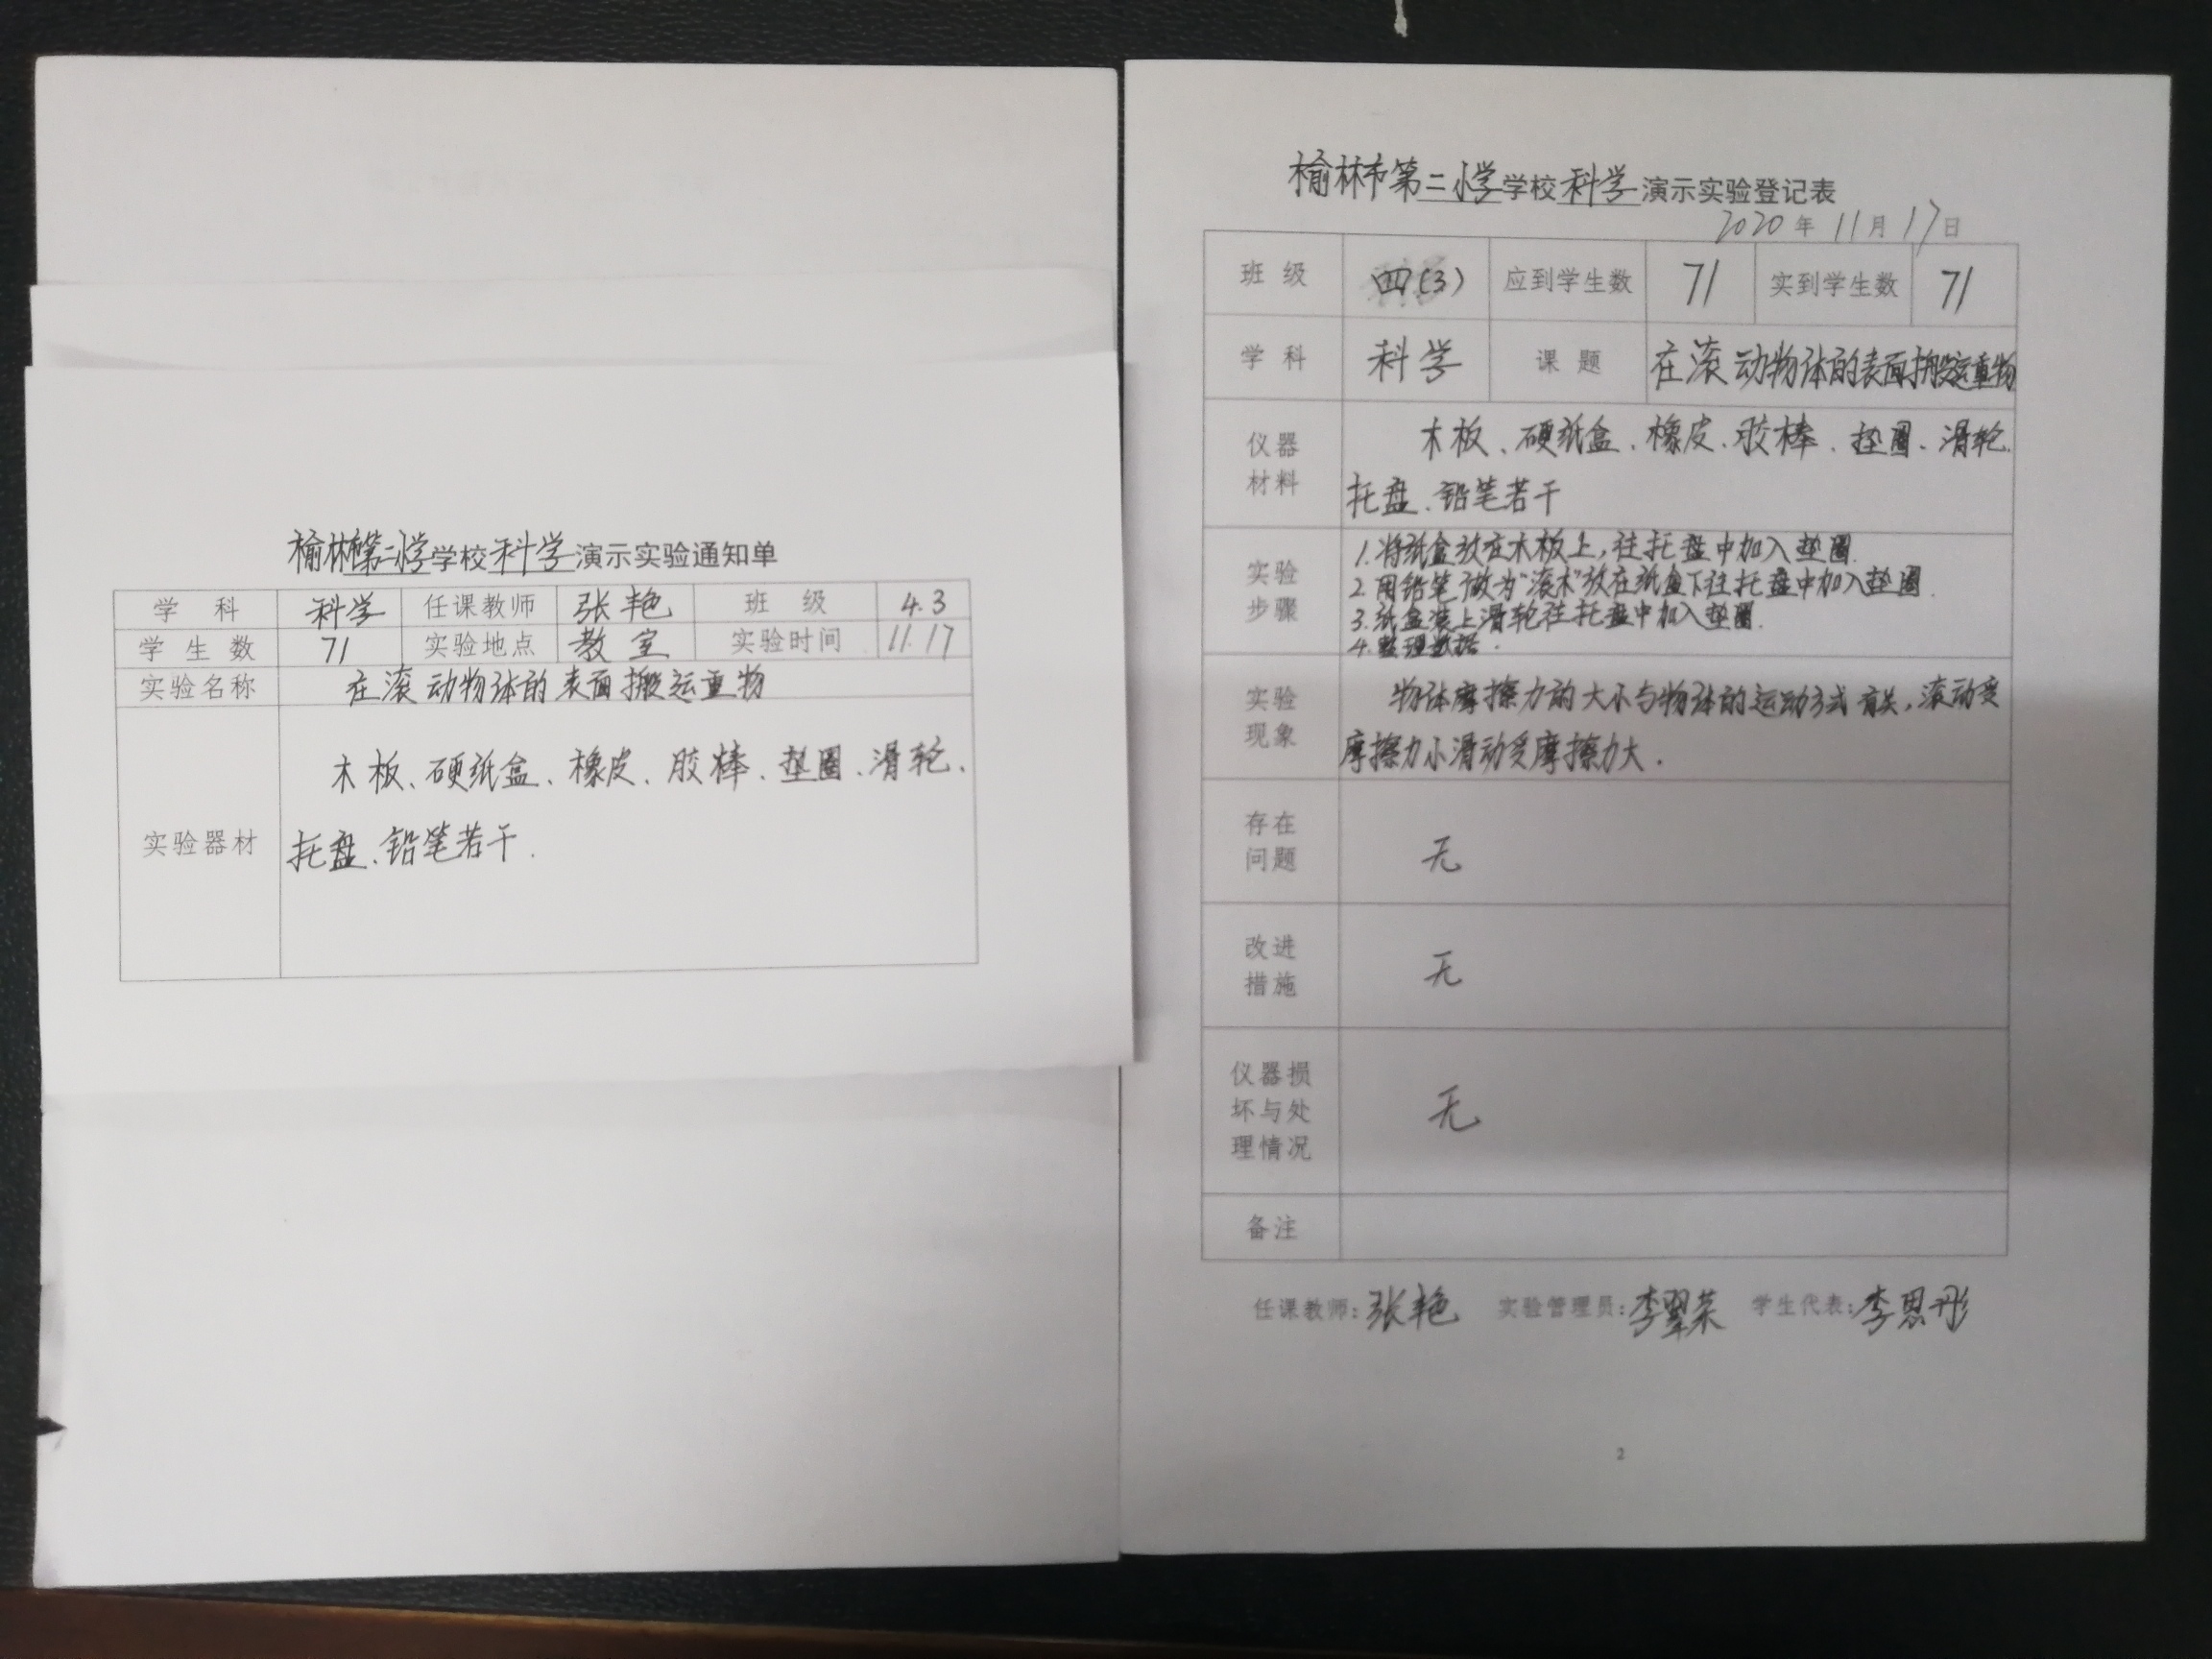 榆林市第二小学学校科学演示实验通知单
学 科 科学 任课教师 张艳 班 级 4.3
学 生 数 71 实验地点 教室 实验时间 11.17
实验名称 在滚动物体的表面搬运重物
木板、硬纸盒、橡皮、胶棒、垫圈、滑轮、
实验器材 托盘、铅笔若干.
榆林市第二小学学校科学演示实验登记表
2020年11月17日
班 级 四(3) 应到学生数 71 实到学生数 71
学 科 科学 课 题 在滚动物体的表面搬运重物
仪器 木板、硬纸盒、橡皮、胶棒、垫圈、滑轮、
材料 托盘、铅笔若干
1.将纸盒放在木板上,往托盘中加入垫圈.
实验 2.用铅笔做为"滚木"放在纸盒下往托盘中加入垫圈.
步骤 3.纸盒装上滑轮往托盘中加入垫圈.
4.整理数据.
实验 物体摩擦力的大小与物体的运动方式有关,滚动受
现象 摩擦力小滑动受摩擦力大.
存在
问题 无
改进
措施 无
仪器损
坏与处 无
理情况
备注
任课教师:张艳 实验管理员:李翠荣 学生代表:李思彤
2